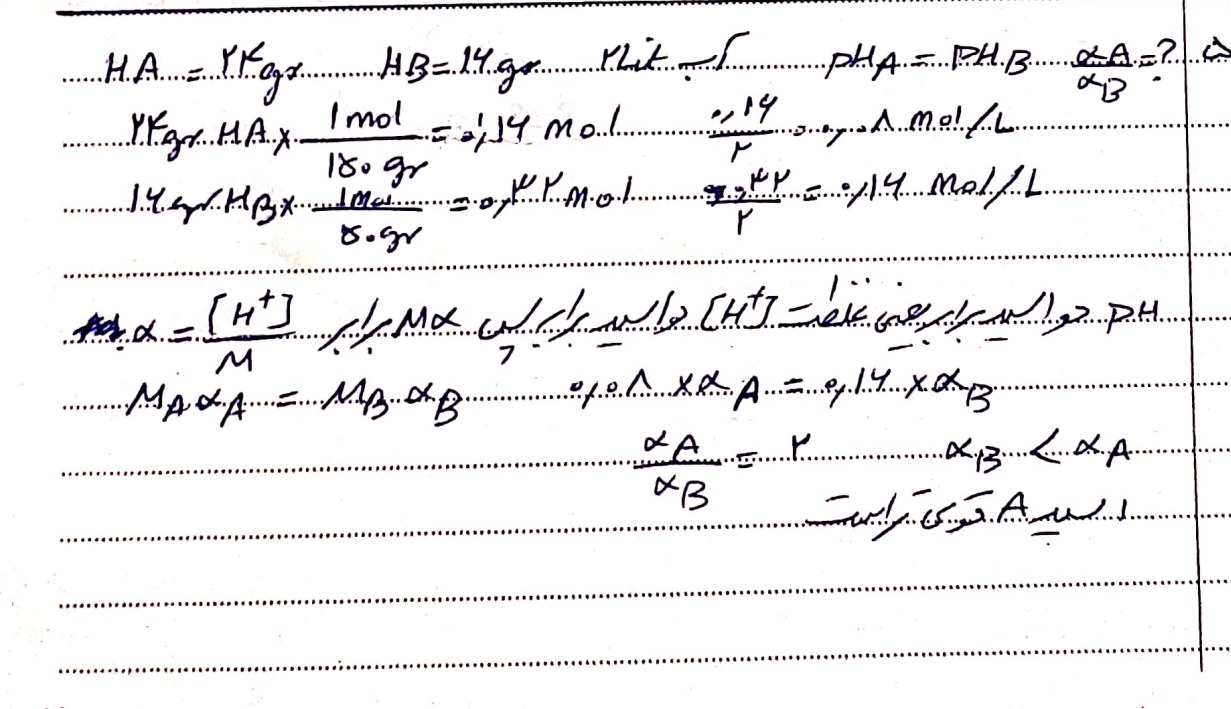 HA = ۲۴gr HB = ۱۶gr آب ۲Lit pHA = PHB αA/αB = ?
۲۴gr HA × 1mol/۱۵۰gr = ۰,۱۶ mol ۰,۱۶/۲ = ۰,۰۸ mol/L
۱۶gr HB × 1mol/۵۰gr = ۰,۳۲ mol ۰,۳۲/۲ = ۰,۱۶ mol/L
PH دو اسید برابر یعنی غلظت [H+] دو اسید برابر پس Mα برابر α = [H+]/M
MAαA = MBαB ۰,۰۸ × αA = ۰,۱۶ × αB
αA/αB = ۲ αB < αA
اسید A قوی تر است